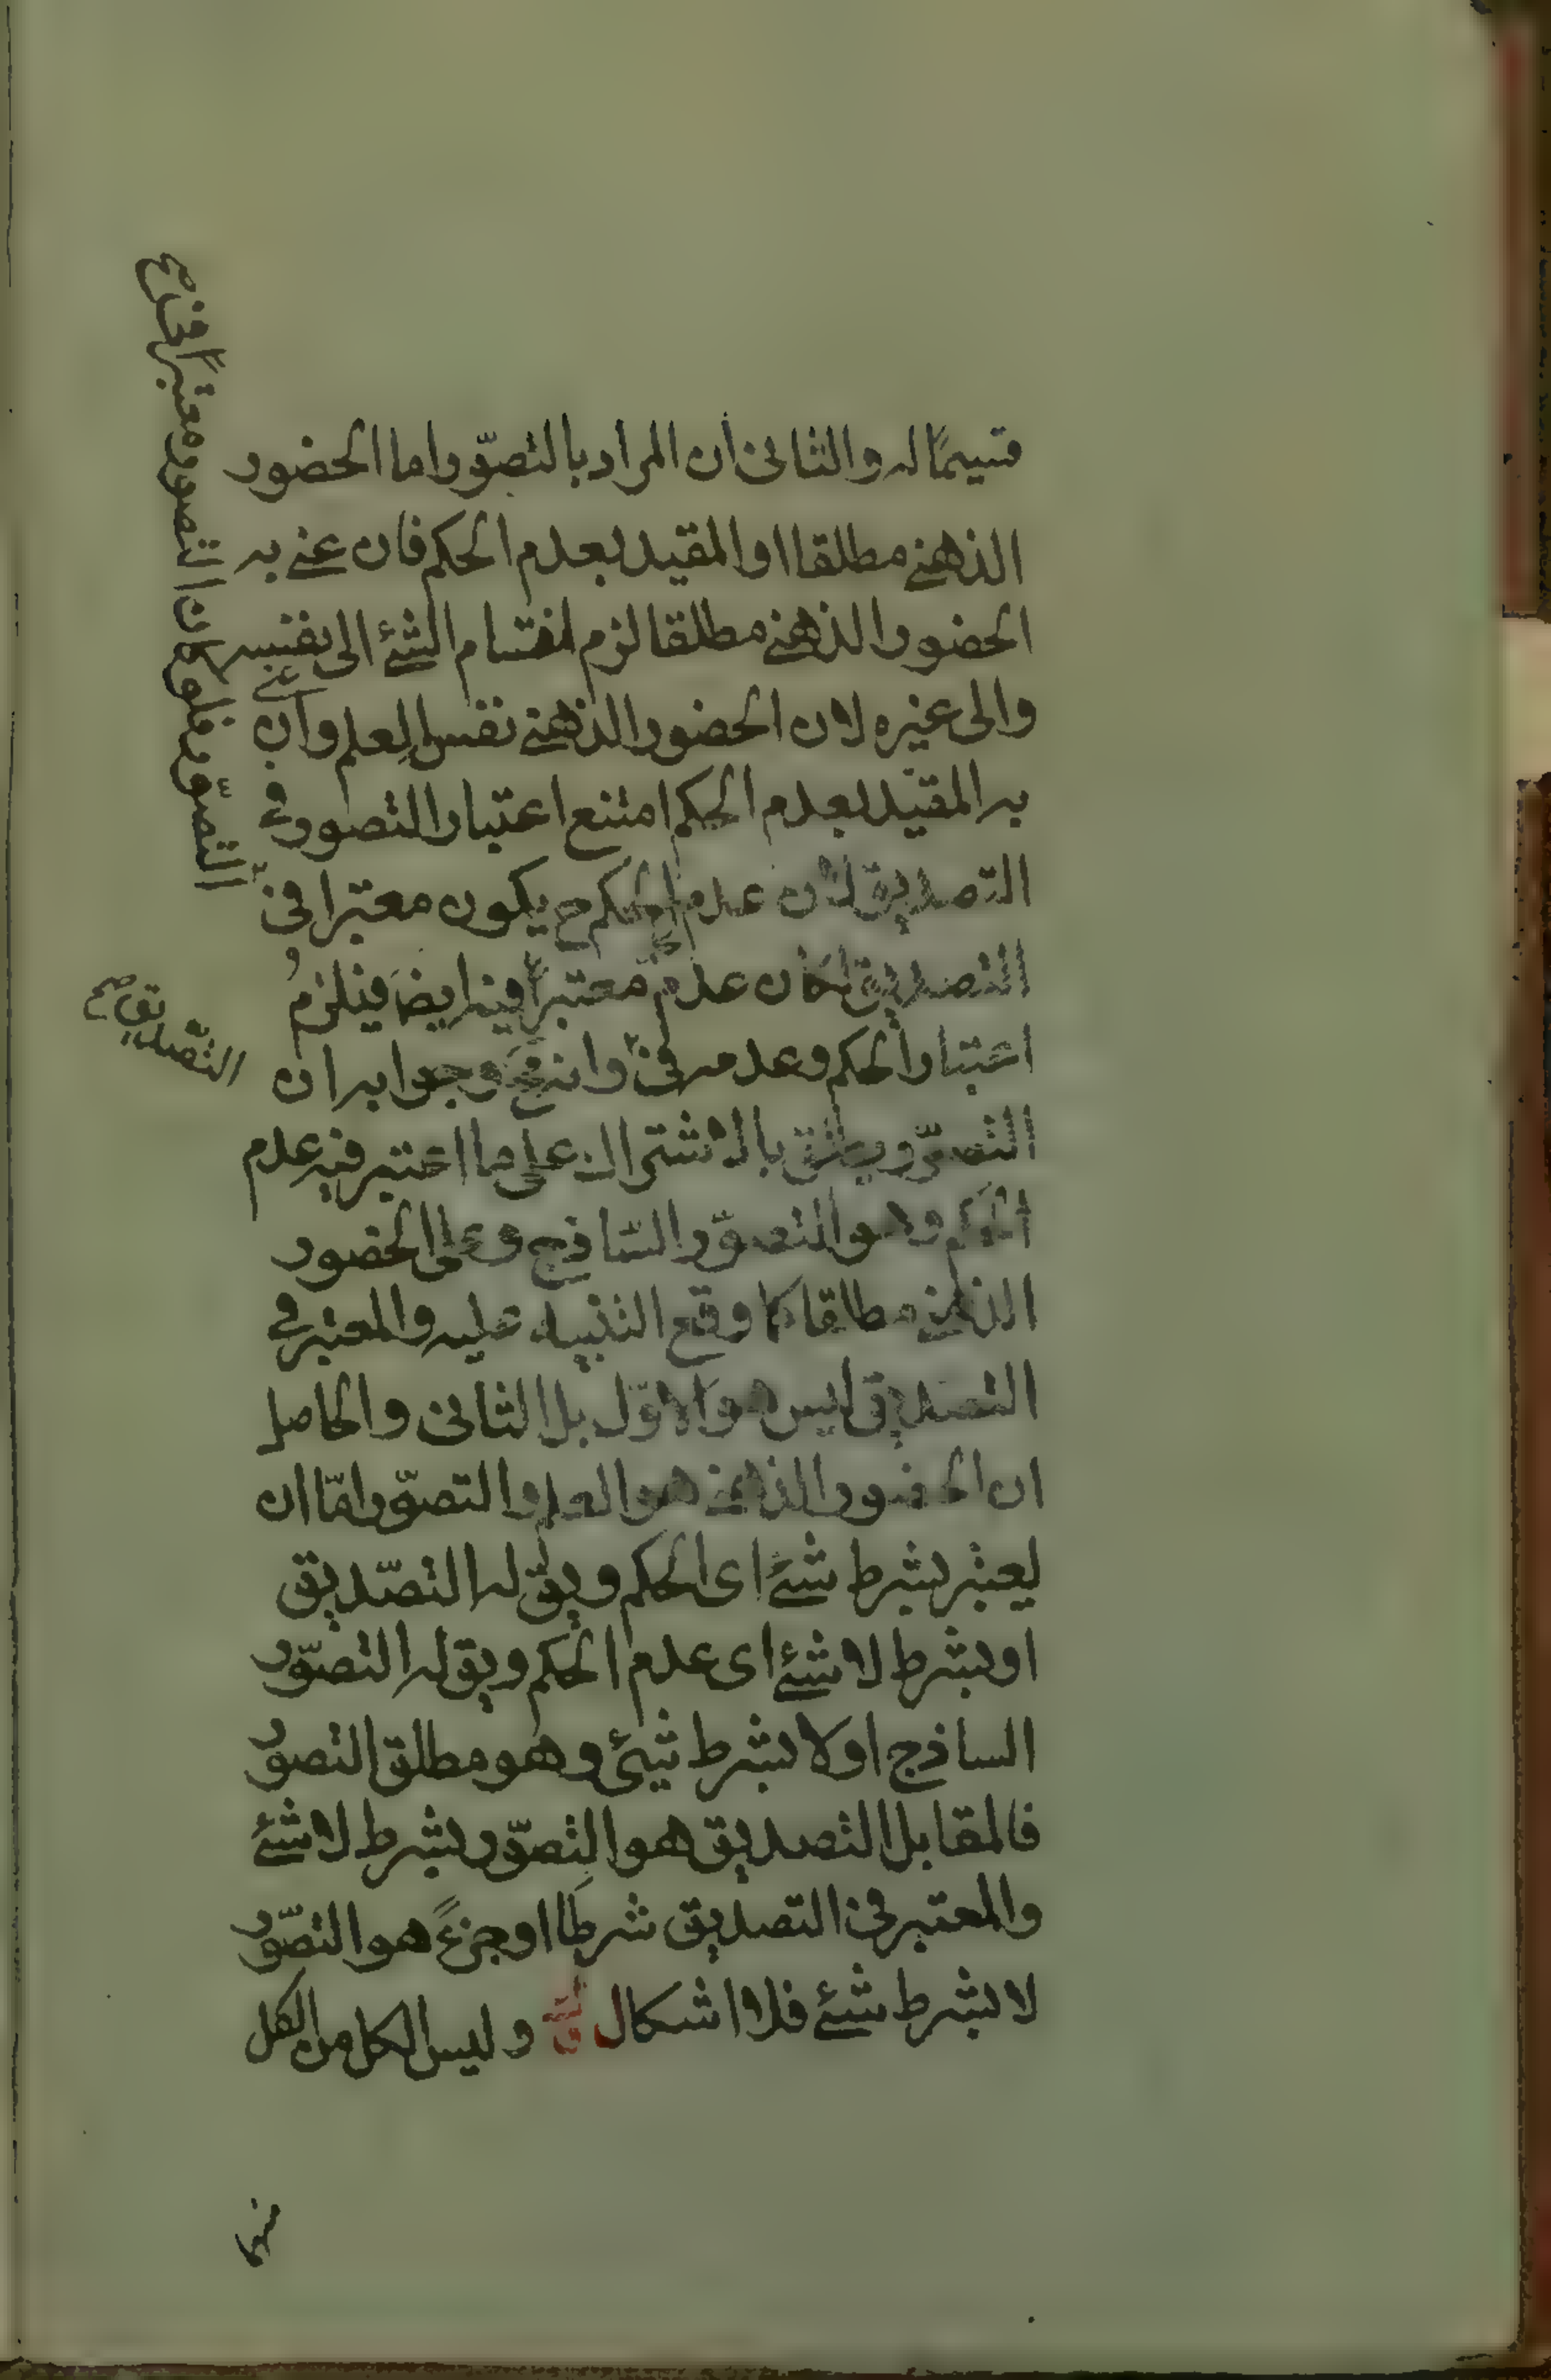 قسيمًا له والثانى ان المراد بالتصوّر اما الحضور
الذهنى مطلقا او المقيد بعدم الحكم فان عنى به
الحضور الذهنى مطلقا لزم انقسام الشئ الى نفسه
والى غيره لان الحضور الذهنى نفس العلم وان عنى
به المقيد بعدم الحكم امتنع اعتبار التصور فى
التصديق لان عدم الحكم ح يكون معتبرا فى
التصور فلو كان التصور معتبرًا فى صح
التصديق لكان عدم معتبرًا فيه ايضا فيلزم
اعتبار الحكم وعدمه فى وانه مح وجوابه ان
التصديق صح
التصوّر يطلق بالاشتراك على ما اعتبر فيه عدم
الحكم وهو التصوّر الساذج وعلى الحضور
الذهنى مطلقا كما وقع التنبيه عليه والمعتبر فى
التصديق ليس هو الاوّل بل الثانى والحاصل
ان الحضور الذهنى هو العلم والتصوّر امّا ان
يعتبر بشرط شئ اى الحكم ويق له التصّديق
او بشرط لا شئ اى عدم الحكم ويق له التصوّر
الساذج او لا بشرط شيئ وهو مطلق التصور
فالمقابل التصديق هو التصوّر بشرط لا شئ
والمعتبر فى التصديق شرطا او جزءً هو التصّور
لا بشرط شئ فلا اشكال وليس الكل من الكل
منهما